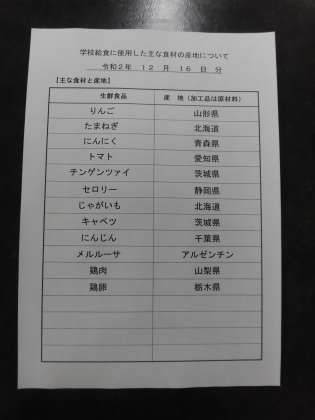 学校給食に使用した主な食材の産地について
令和2年 12 月 16 日 分
【主な食材と産地】
生鮮食品 産 地（加工品は原材料）
りんご 山形県
たまねぎ 北海道
にんにく 青森県
トマト 愛知県
チンゲンツァイ 茨城県
セロリー 静岡県
じゃがいも 北海道
キャベツ 茨城県
にんじん 千葉県
メルルーサ アルゼンチン
鶏肉 山梨県
鶏卵 栃木県